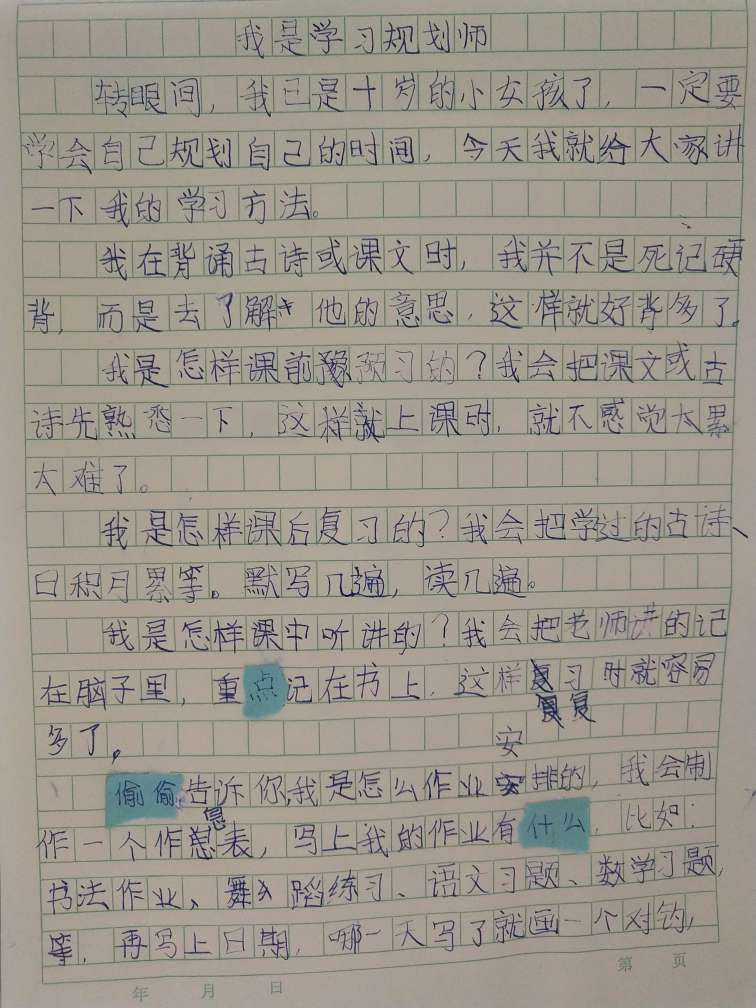 我是学习规划师
转眼间，我已是十岁的小女孩了，一定要
学会自己规划自己的时间，今天我就给大家讲
一下我的学习方法。
我在背诵古诗或课文时，我并不是死记硬
背，而是去了解他的意思，这样就好背多了。
我是怎样课前预习的？我会把课文或古
诗先熟悉一下，这样就上课时，就不感觉太累
太难了。
我是怎样课后复习的？我会把学过的古诗、
日积月累等。默写几遍，读几遍。
我是怎样课中听讲的？我会把老师讲的记
在脑子里，重点记在书上，这样复习时就容易
多了，
偷偷告诉你，我是怎么作业安排的，我会制
作一个作息表，写上我的作业有什么，比如：
书法作业、舞蹈练习、语文习题、数学习题，
等，再写上日期，哪一天写了就画一个对钩，
年 月 日
第 页